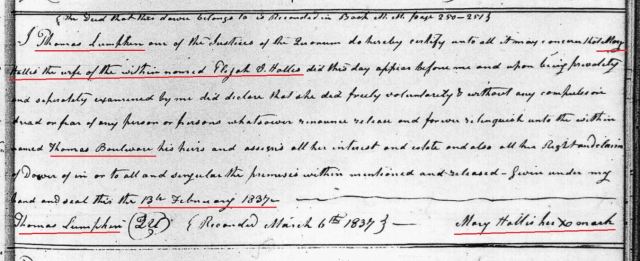 {The Deed that this dower belongs to is Recorded in Book M.M. page 280-281}
I Thomas Lumpkin one of the Justices of the Quorum do hereby certify unto all it may concern that Mary
Hallis the wife of the within named Elijah S. Hallis did this day appear before me and upon being privately
and separately examined by me did declare that she did freely voluntarily & without any compulsion
dread or fear of any person or persons whatsoever renounce release and forever relinquish unto the within
named Thomas Boulware his heirs and assigns all her interest and estate and also all her Right and claim
of Dower of in or to all and singular the premises within mentioned and released - Given under my
hand and seal this the 13th February 1837
Thomas Lumpkin (QU) { Recorded March 6th 1837 } Mary Hallis her X mark